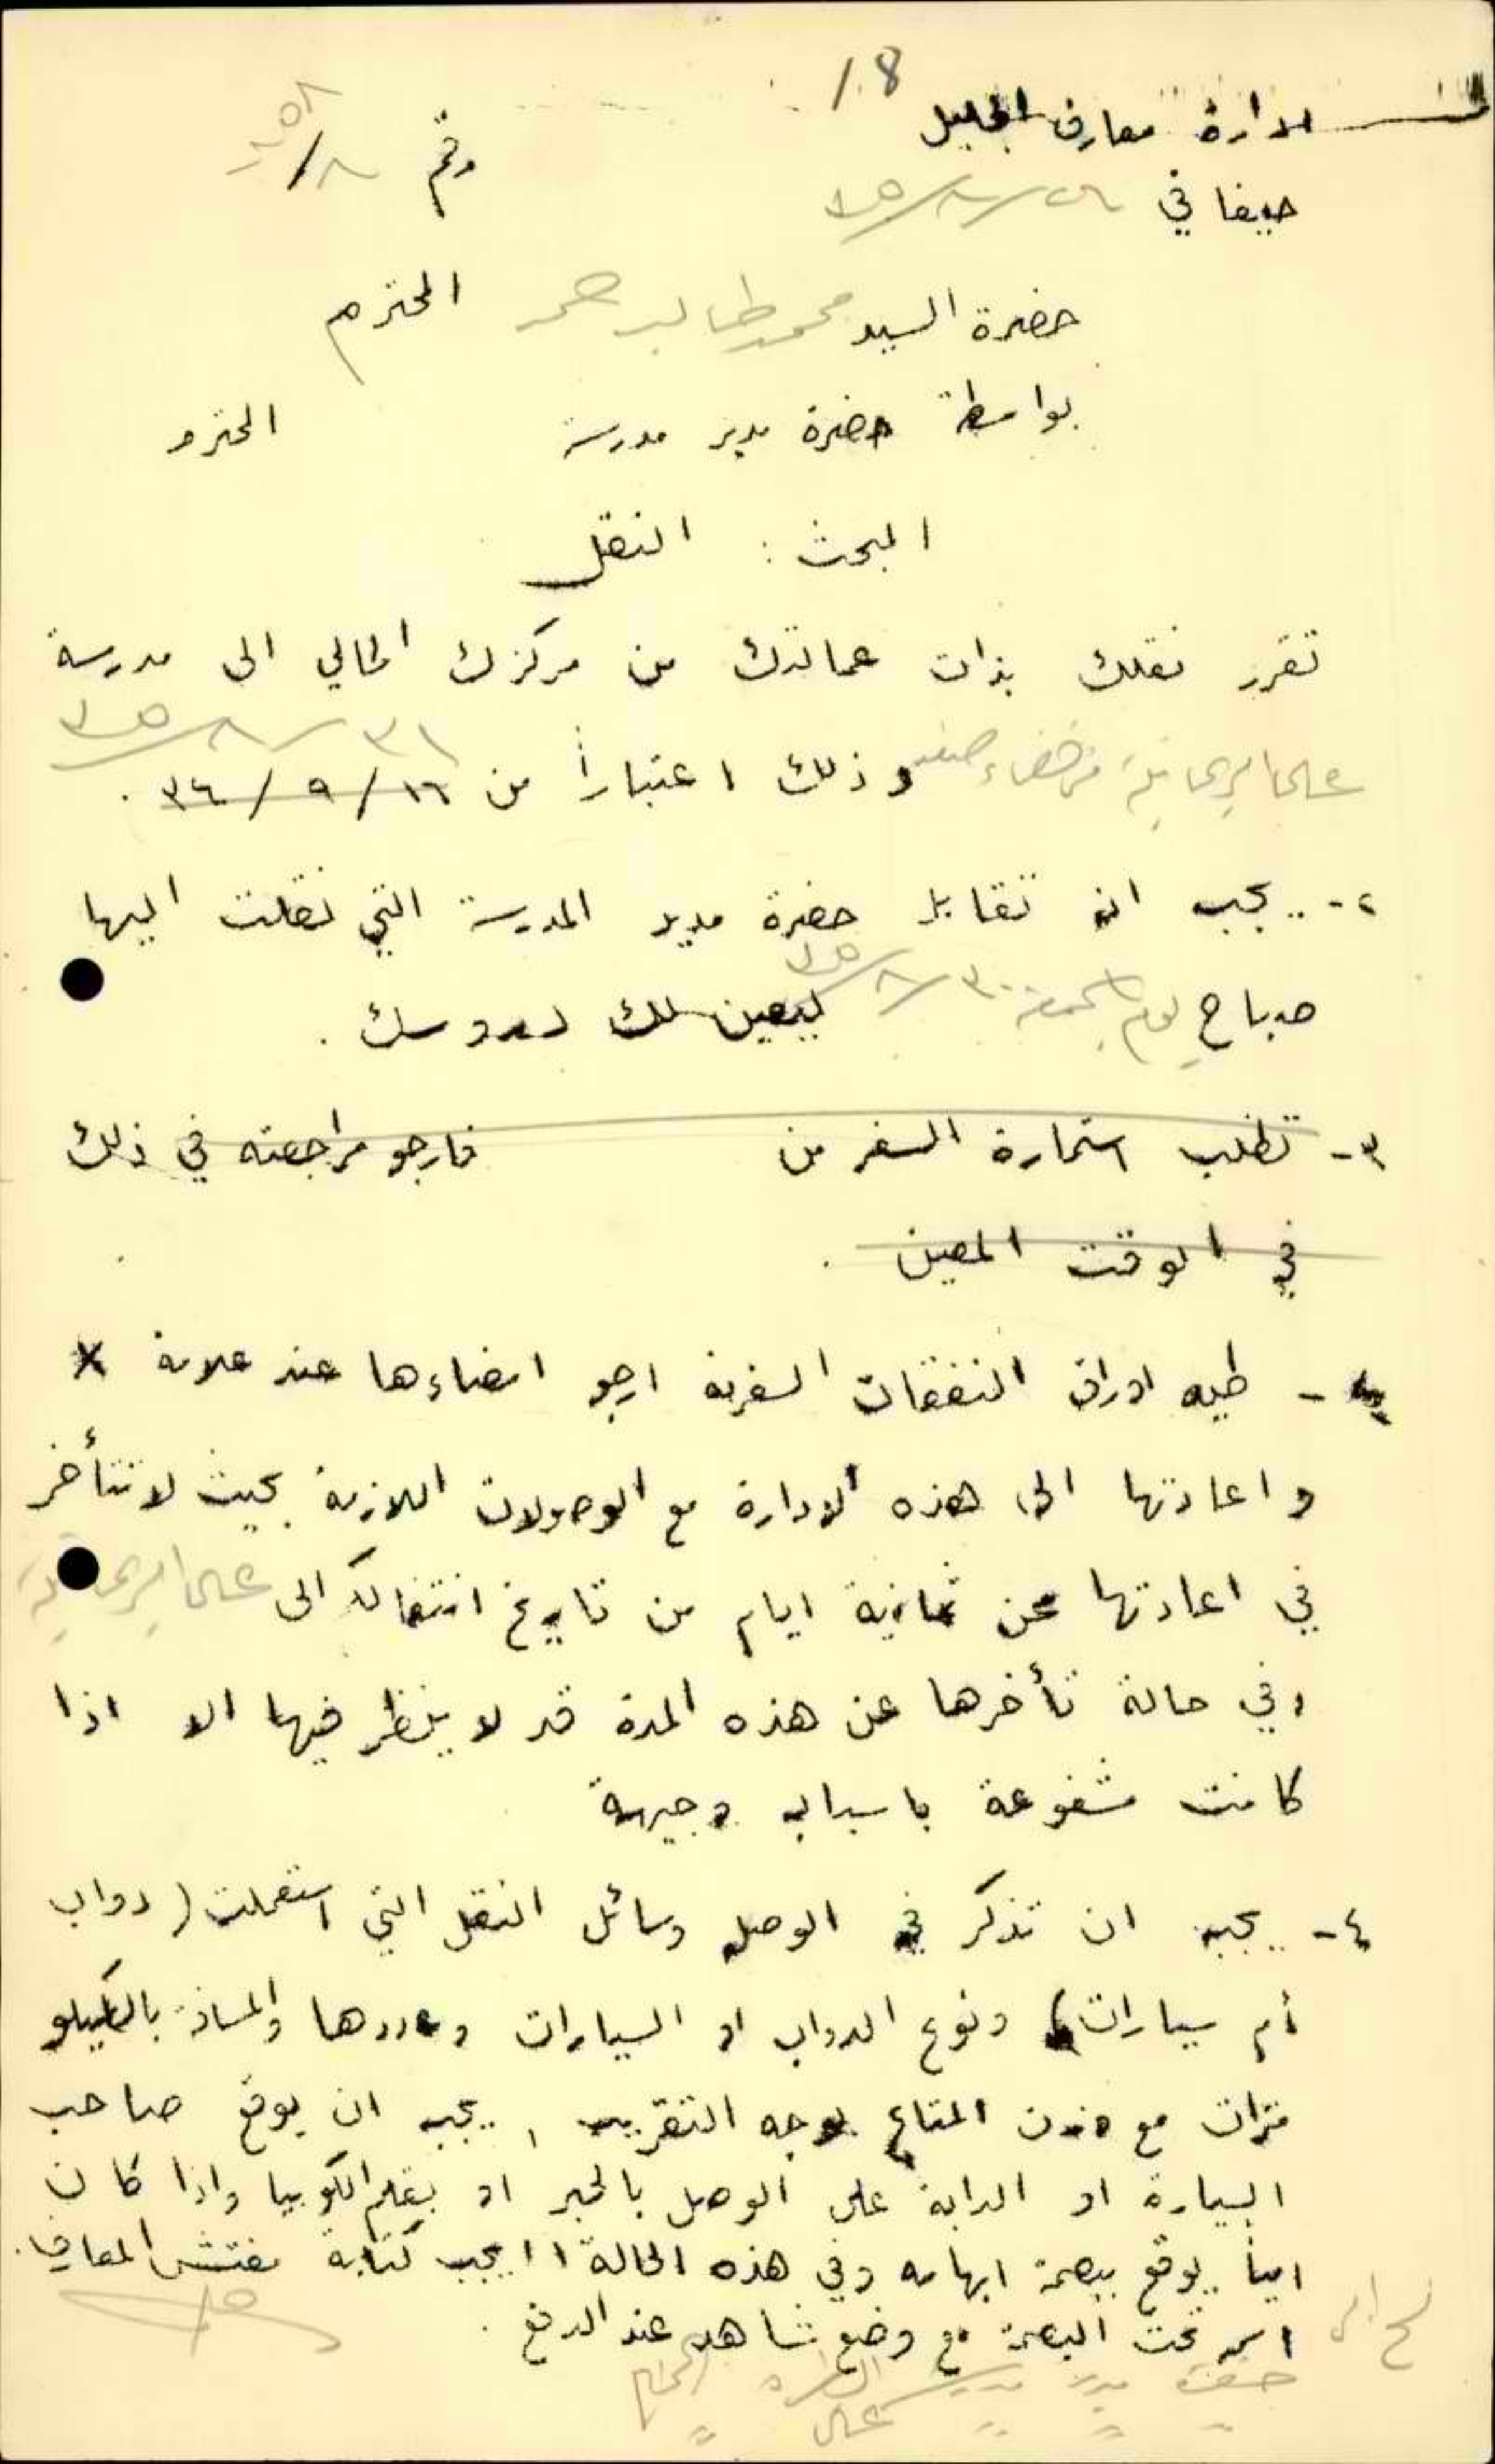 18
ادارة معارف الجليل
حيفا في رقم
حضرة السيد محمد طالب المحترم
بواسطة حضرة مدير مدرسة المحترم
المبحث : النقل
تقرر نقلك بذات عمالتك من مركزك الحالي الى مدرسة
٣١/٨/٣٥
وذلك اعتباراً من ١٦/٩/٣٤ .
٢- يجب ان تقابل حضرة مدير المدرسة التي نقلت اليها
صباح يوم الجمعة ٣٠/٨/٣٥ ليعين لك دروسك .
٣- تطلب استمارة السفر من فارجو مراجعته في ذلك
في الوقت المعين .
- طيه اوراق النفقات السفرية ارجو امضاءها عند علامة X
واعادتها الى هذه الادارة مع الوصولات اللازمة بحيث لا تتأخر
في اعادتها عن ثمانية ايام من تاريخ انتقالك الى
وفي حالة تأخرها عن هذه المدة قد لا ينظر فيها الا اذا
كانت مشفوعة باسباب وجيهة
٤- يجب ان تذكر في الوصل وسائل النقل التي استعملت (دواب
أم سيارات) ونوع الدواب او السيارات وعددها والمسافة بالكيلو
مترات مع وزن المتاع بوجه التقريب , يجب ان يوقع صاحب
السيارة او الدابة على الوصل بالحبر او بقلم الكوبيا واذا كان
امياً يوقع ببصمة ابهامه وفي هذه الحالة يجب كتابة مفتش المعارف
اسمه تحت البصمة مع وضع شاهد عند الدفع .
حضرة مدير مدرسة